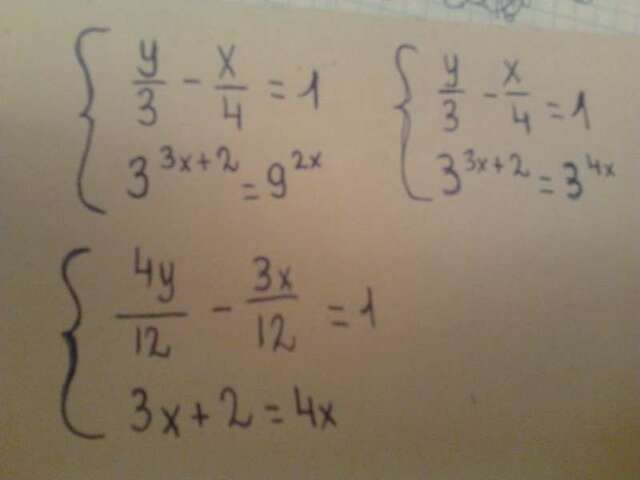 y/3 - x/4 = 1
3^{3x+2} = 9^{2x}
y/3 - x/4 = 1
3^{3x+2} = 3^{4x}
4y/12 - 3x/12 = 1
3x+2=4x